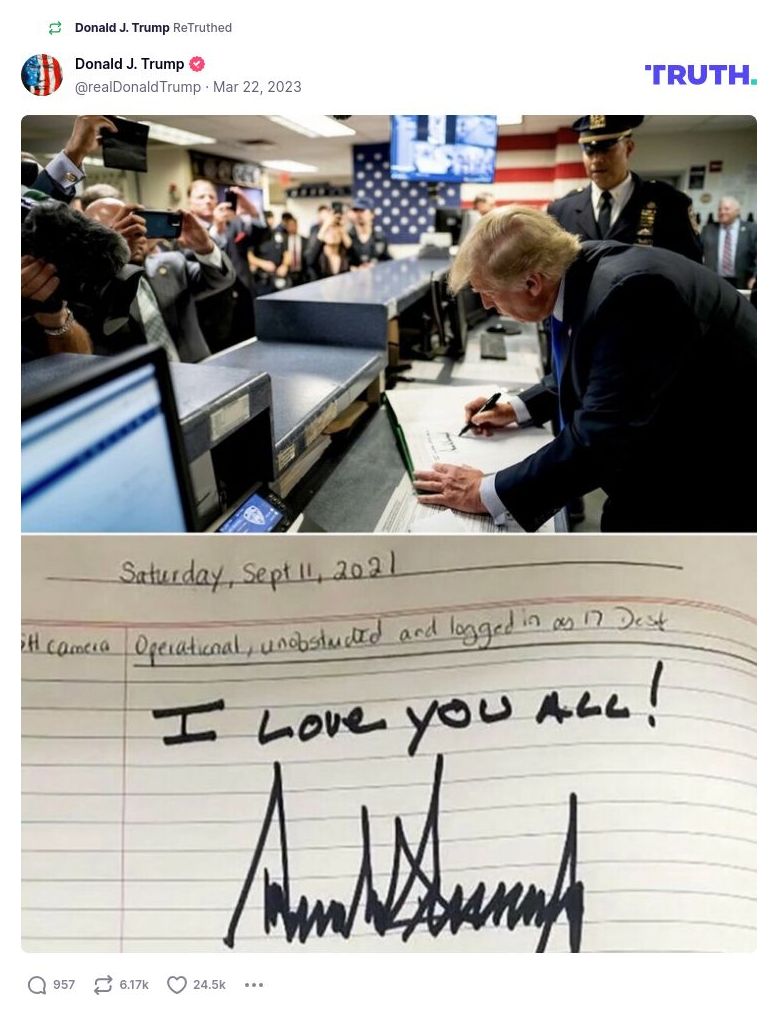 Donald J. Trump ReTruthed
Donald J. Trump
@realDonaldTrump · Mar 22, 2023
TRUTH.
Saturday, Sept 11, 2021
camera Operational, unobstructed and logged in as 17 Desk
I LOVE YOU ALL!
957 6.17k 24.5k